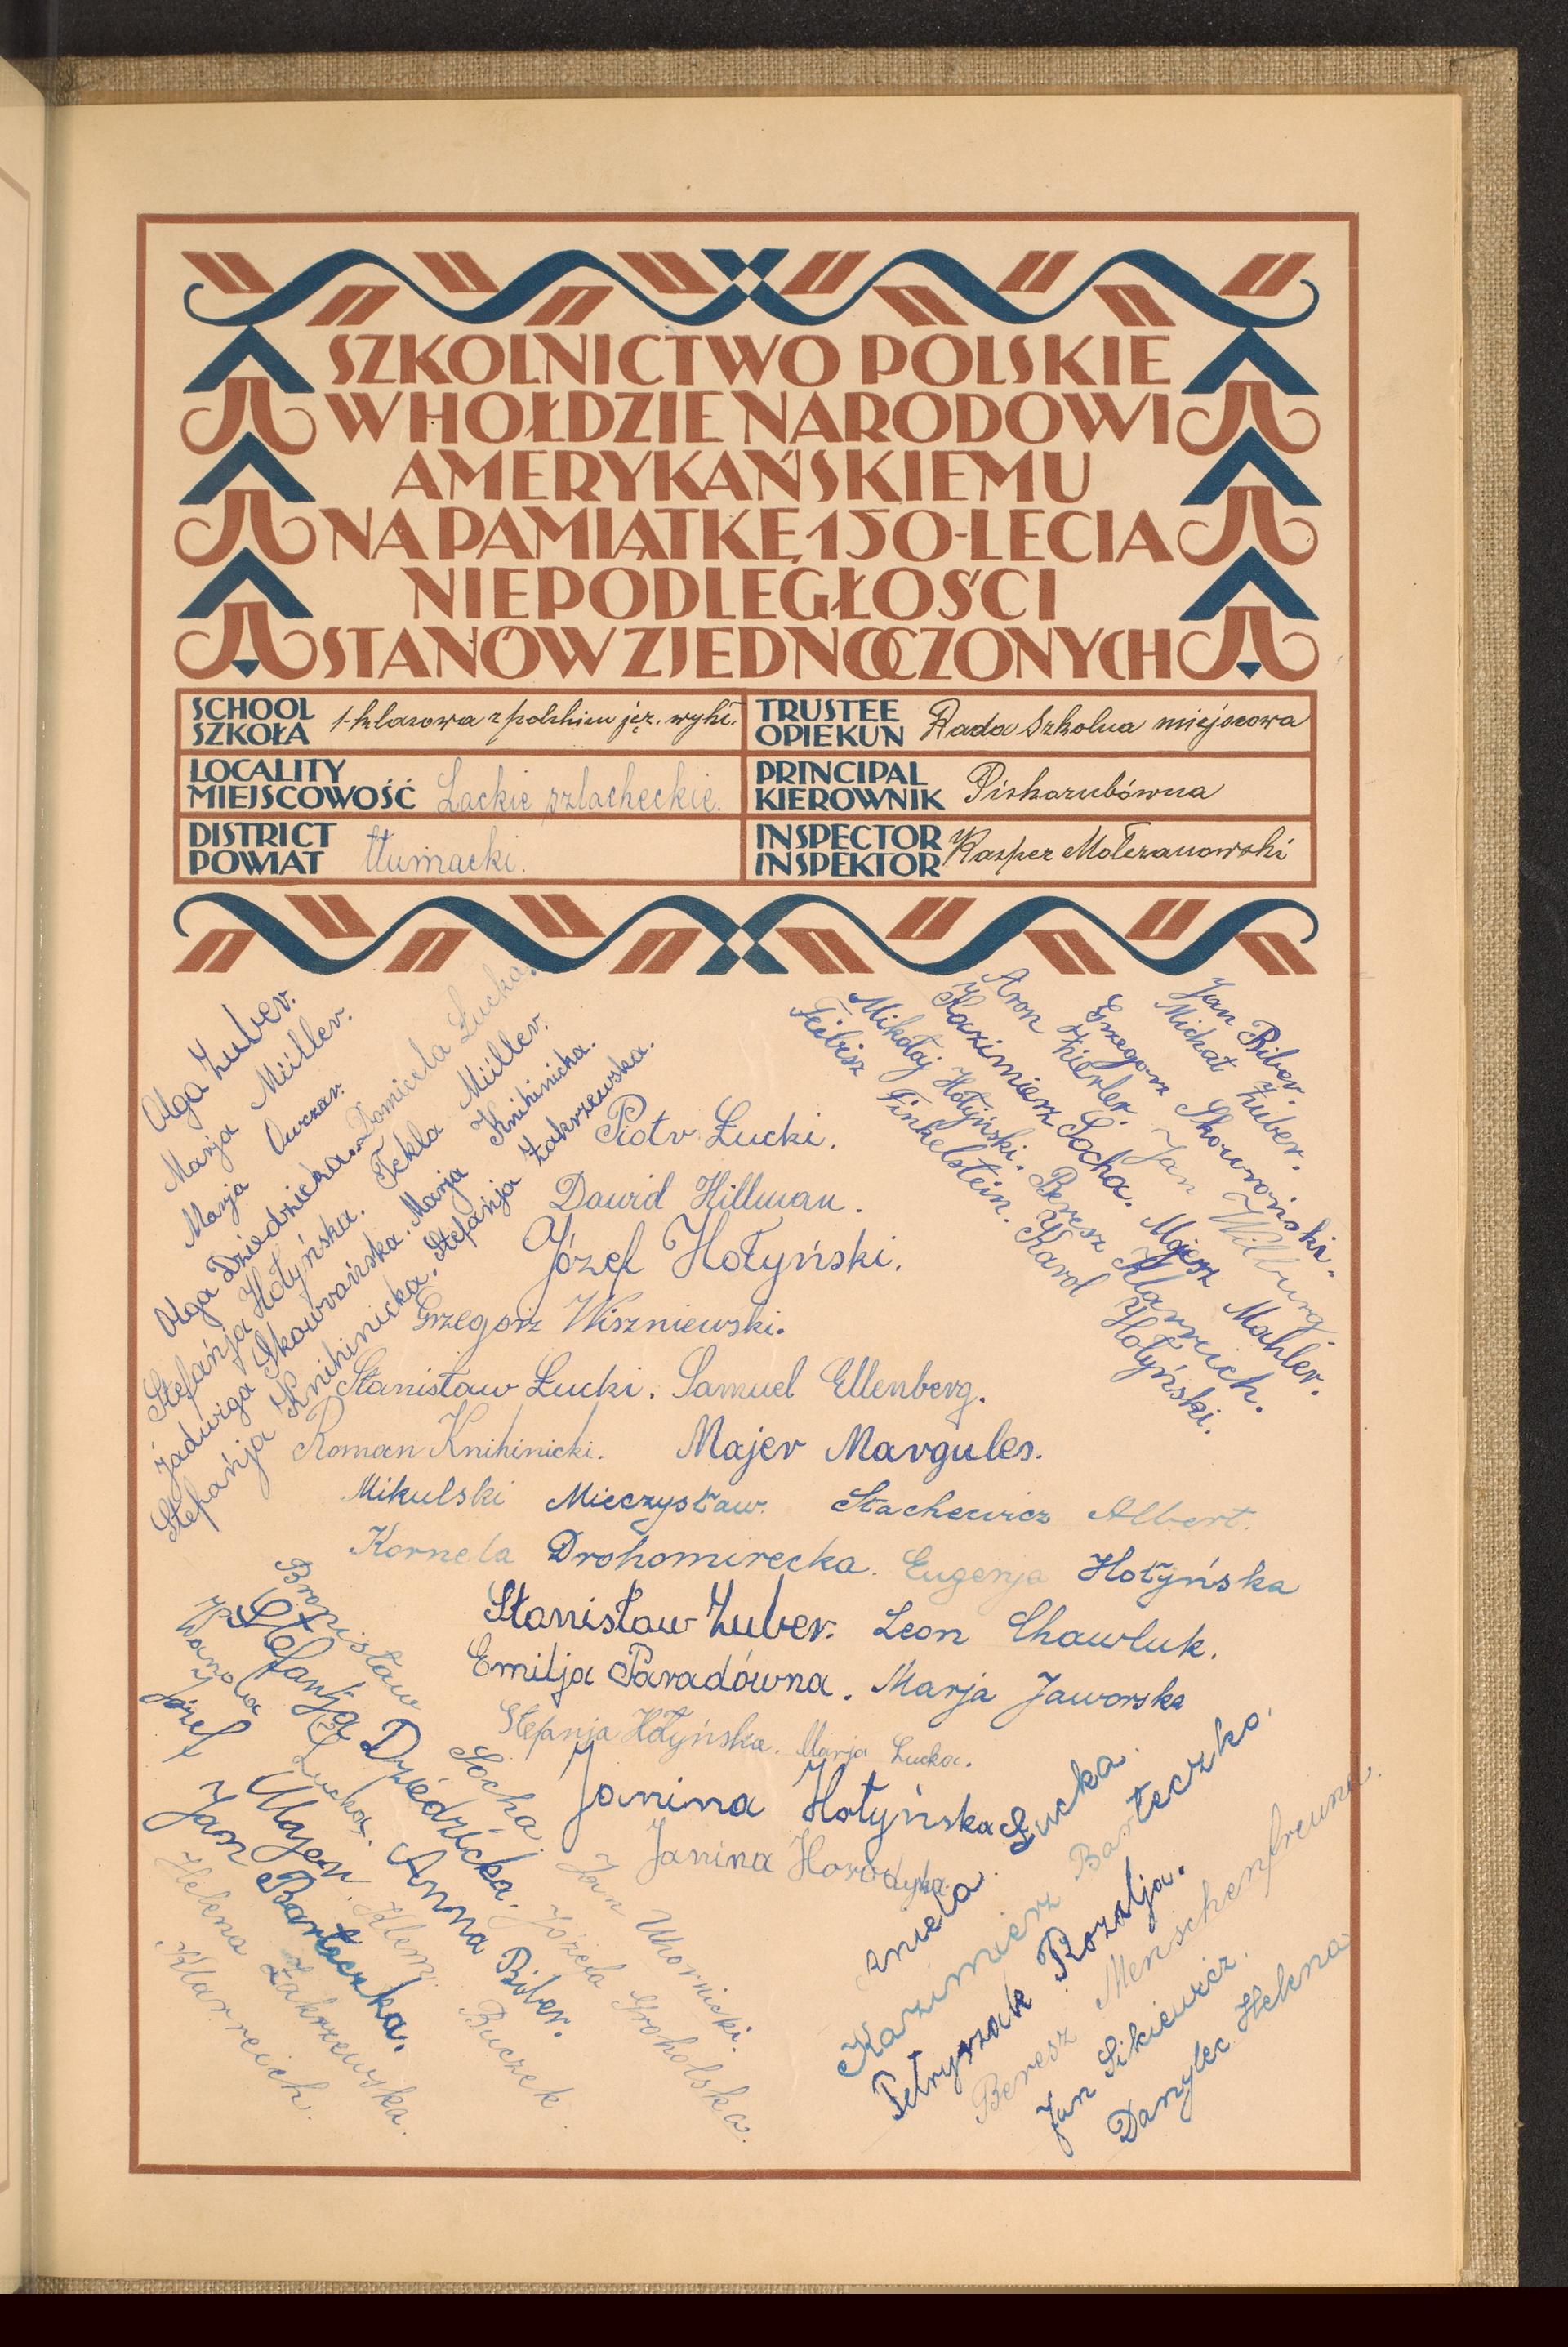 SZKOLNICTWO POLSKIE
W HOŁDZIE NARODOWI
AMERYKAŃSKIEMU
NA PAMIĄTKĘ 150-LECIA
NIEPODLEGŁOŚCI
STANÓW ZJEDNOCZONYCH
SCHOOL SZKOŁA 1-klasowa z polskim jęz. wykł.
TRUSTEE OPIEKUN Rada Szkolna miejscowa
LOCALITY MIEJSCOWOŚĆ Łackie szlacheckie.
PRINCIPAL KIEROWNIK Piskozubówna
DISTRICT POWIAT tłumacki.
INSPECTOR INSPEKTOR Kasper Mołczanowski
Olga Zuber.
Marja Müller.
Marja Owczar.
Olga Dziedzicka. Domicela Łucka.
Stefańja Hołyńska. Tekla Müller.
Jadwiga Skowrońska. Marja Knihinicka.
Stefańja Knihinicka. Stefańja Zakrzewska.
Jan Biber.
Michał Zuber.
Grzegorz Skowroński.
Aron Zierler. Jan Wilburg.
Kazimierz Socha. Majesz Mahler.
Mikołaj Hołyński. Beresz Klarreich.
Feibisz Finkelstein. Karol Hołyński.
Piotr Łucki.
Dawid Hillman.
Józef Hołyński.
Grzegorz Wiszniewski.
Stanisław Łucki. Samuel Ellenberg.
Roman Knihinicki. Majer Margules.
Mikulski Mieczysław. Stachewicz Albert.
Kornela Drohomirecka. Eugenja Hołyńska
Stanisław Zuber. Leon Chawluk.
Emilja Paradówna. Marja Jaworska
Stefanja Hołyńska. Marja Łucka.
Janina Hołyńska
Janina Horodyka.
Bronisław Socha. Jan Uhornicki.
Stefanja Dziedzicka. Józefa Groholska.
Wanda Łucka. Anna Biber.
Józef Majer. Klem. Buczek.
Jan Barteczka.
Helena Zakrzewska.
Klarreich.
Aniela Łucka.
Kazimierz Barteczko.
Petryszak Rozalja.
Beresz Menschenfreund.
Jan Sikiewicz.
Danylec Helena